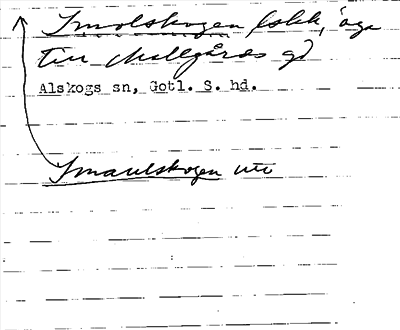 Smolskogen folk, äga
till Hallgårds gd
Alskogs sn, Gotl. S. hd.
Smaulskogen uti